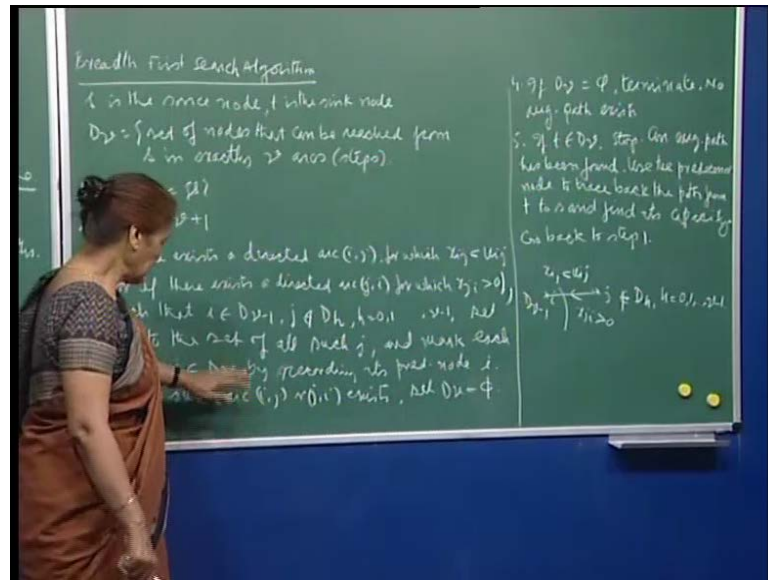 Breadth First Search Algorithm
s is the source node, t is the sink node
Dν = {set of nodes that can be reached from
s in exactly ν arcs (steps).
= {s}
ν+1
exists a directed arc (i,j), for which xij < uij
if there exists a directed arc (j,i) for which xji > 0),
that i ∈ Dν-1, j ∉ Dh, h=0,1 ν-1, set
to the set of all such j, and mark each
by recording its pred. node i.
arc (i,j) or (j,i) exists, set Dν = φ.
4. If Dν = φ, terminate. No
aug. path exists
5. If t ∈ Dν, stop. An aug. path
has been found. Use the predecessor
node to trace back the path from
t to s and find its capacity
Go back to step 1.
xij < uij
Dν-1 j ∉ Dh, h=0,1,..ν-1
xji > 0